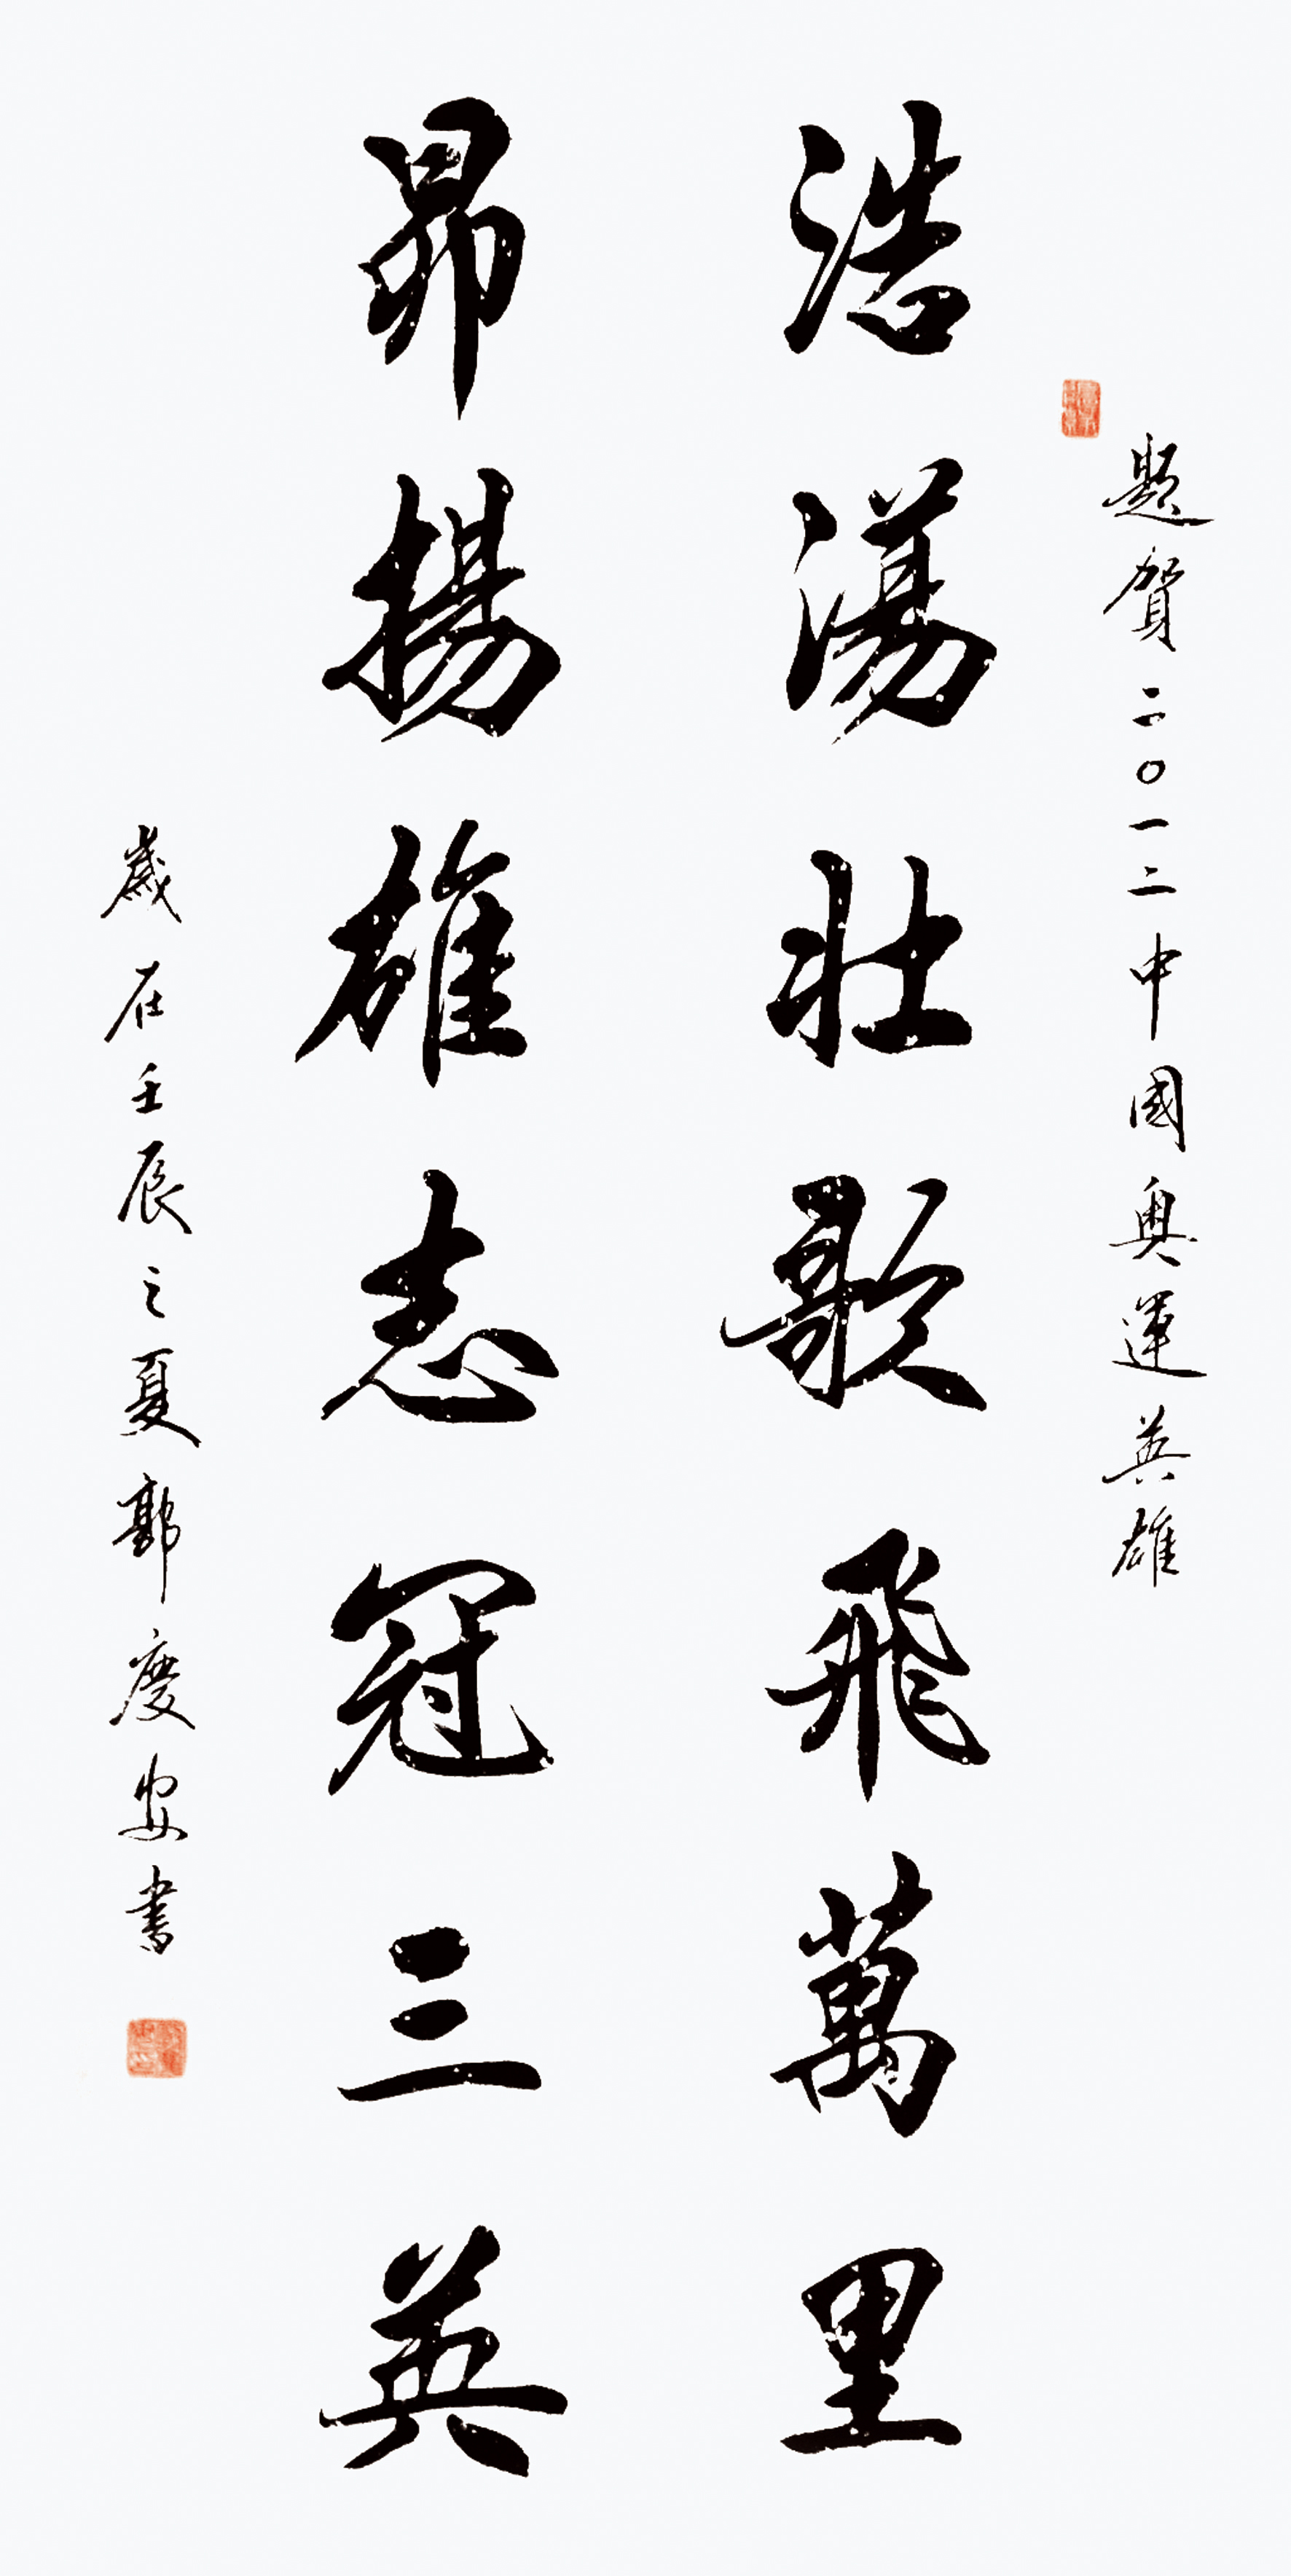 題賀二〇一二中國奧運英雄
浩蕩壯歌飛萬里
昂揚雄志冠三英
歲在壬辰之夏郭慶安書